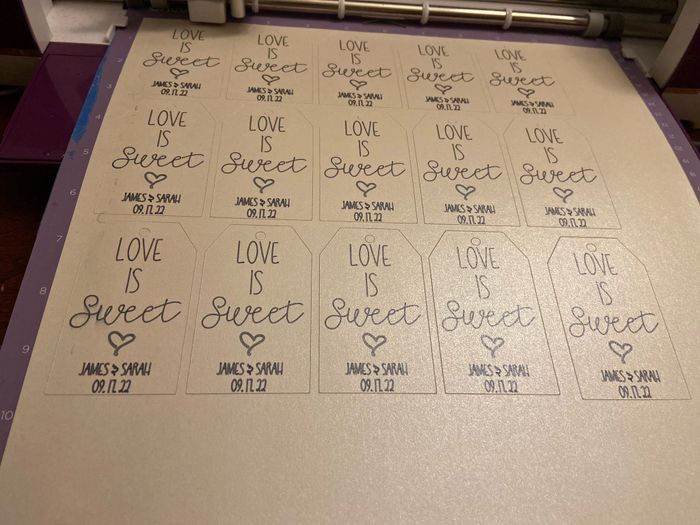 LOVE
IS
Sweet
JAMES & SARAH
09.17.22
LOVE
IS
Sweet
JAMES & SARAH
09.17.22
LOVE
IS
Sweet
JAMES & SARAH
09.17.22
LOVE
IS
Sweet
JAMES & SARAH
09.17.22
LOVE
IS
Sweet
JAMES & SARAH
09.17.22
LOVE
IS
Sweet
JAMES & SARAH
09.17.22
LOVE
IS
Sweet
JAMES & SARAH
09.17.22
LOVE
IS
Sweet
JAMES & SARAH
09.17.22
LOVE
IS
Sweet
JAMES & SARAH
09.17.22
LOVE
IS
Sweet
JAMES & SARAH
09.17.22
LOVE
IS
Sweet
JAMES & SARAH
09.17.22
LOVE
IS
Sweet
JAMES & SARAH
09.17.22
LOVE
IS
Sweet
JAMES & SARAH
09.17.22
LOVE
IS
Sweet
JAMES & SARAH
09.17.22
LOVE
IS
Sweet
JAMES & SARAH
09.17.22
5
6
7
8
9
10